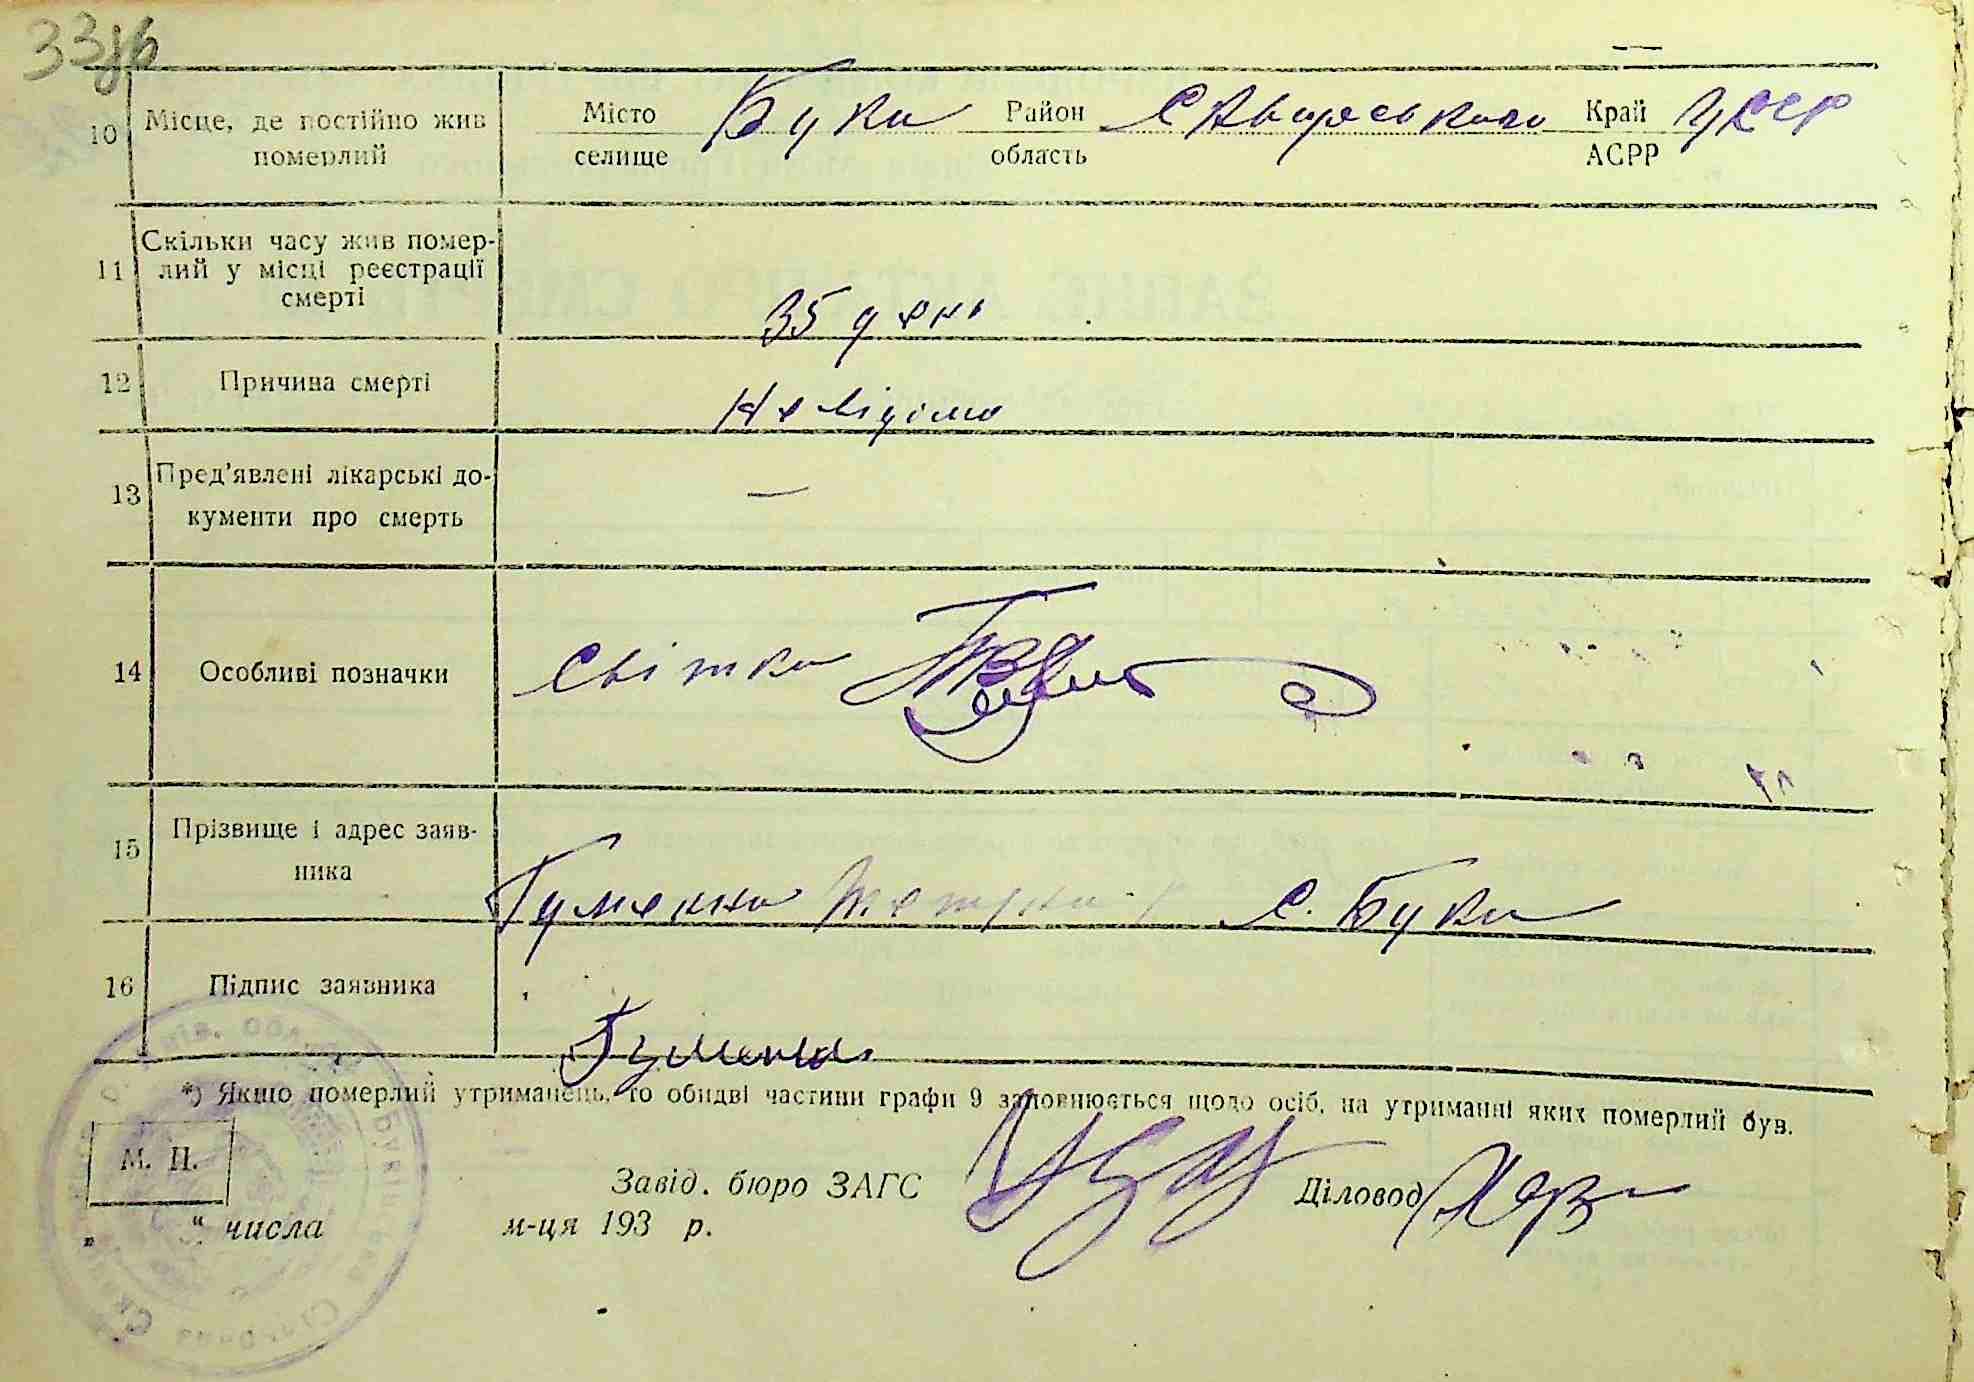 33зв
10 Місце, де постійно жив Місто Буки Район Сквирського Край УССР
померлий селище область АСРР
11 Скільки часу жив помер-
лий у місці реєстрації
смерті 35 день
12 Причина смерті Невідомо
13 Пред'явлені лікарські до- —
кументи про смерть
14 Особливі позначки Свідки
15 Прізвище і адрес заяв-
ника Гуменна с. Буки
16 Підпис заявника Гуменна
*) Якщо померлий утриманець, то обидві частини графи 9 заповнюється щодо осіб, на утриманні яких померлий був.
М. П.
Завід. бюро ЗАГС Діловод
„ “ числа м-ця 193 р.